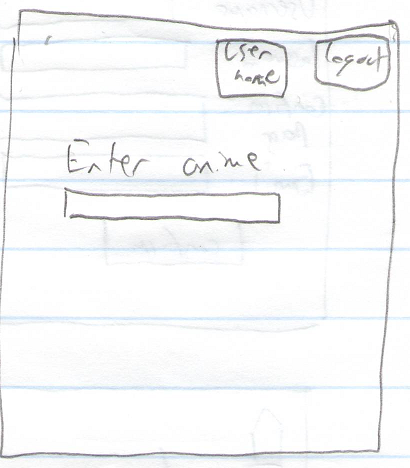 User
name
logout
Enter anime